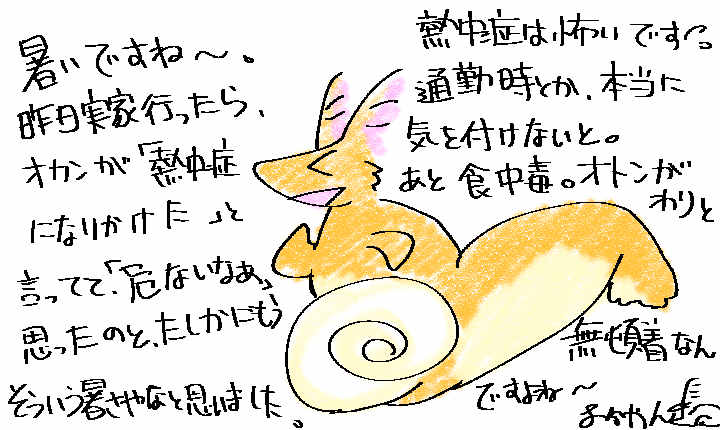 暑いですね〜。
昨日実家行ったら、
オカンが「熱中症
になりかけた」と
言ってて、「危ないなあ」
思ったのと、たしかにもう
そういう暑さやなと思いました。
熱中症は怖いです
通勤時とか、本当に
気を付けないと。
あと食中毒。オトンが
わりと
無頓着なん
ですよね〜